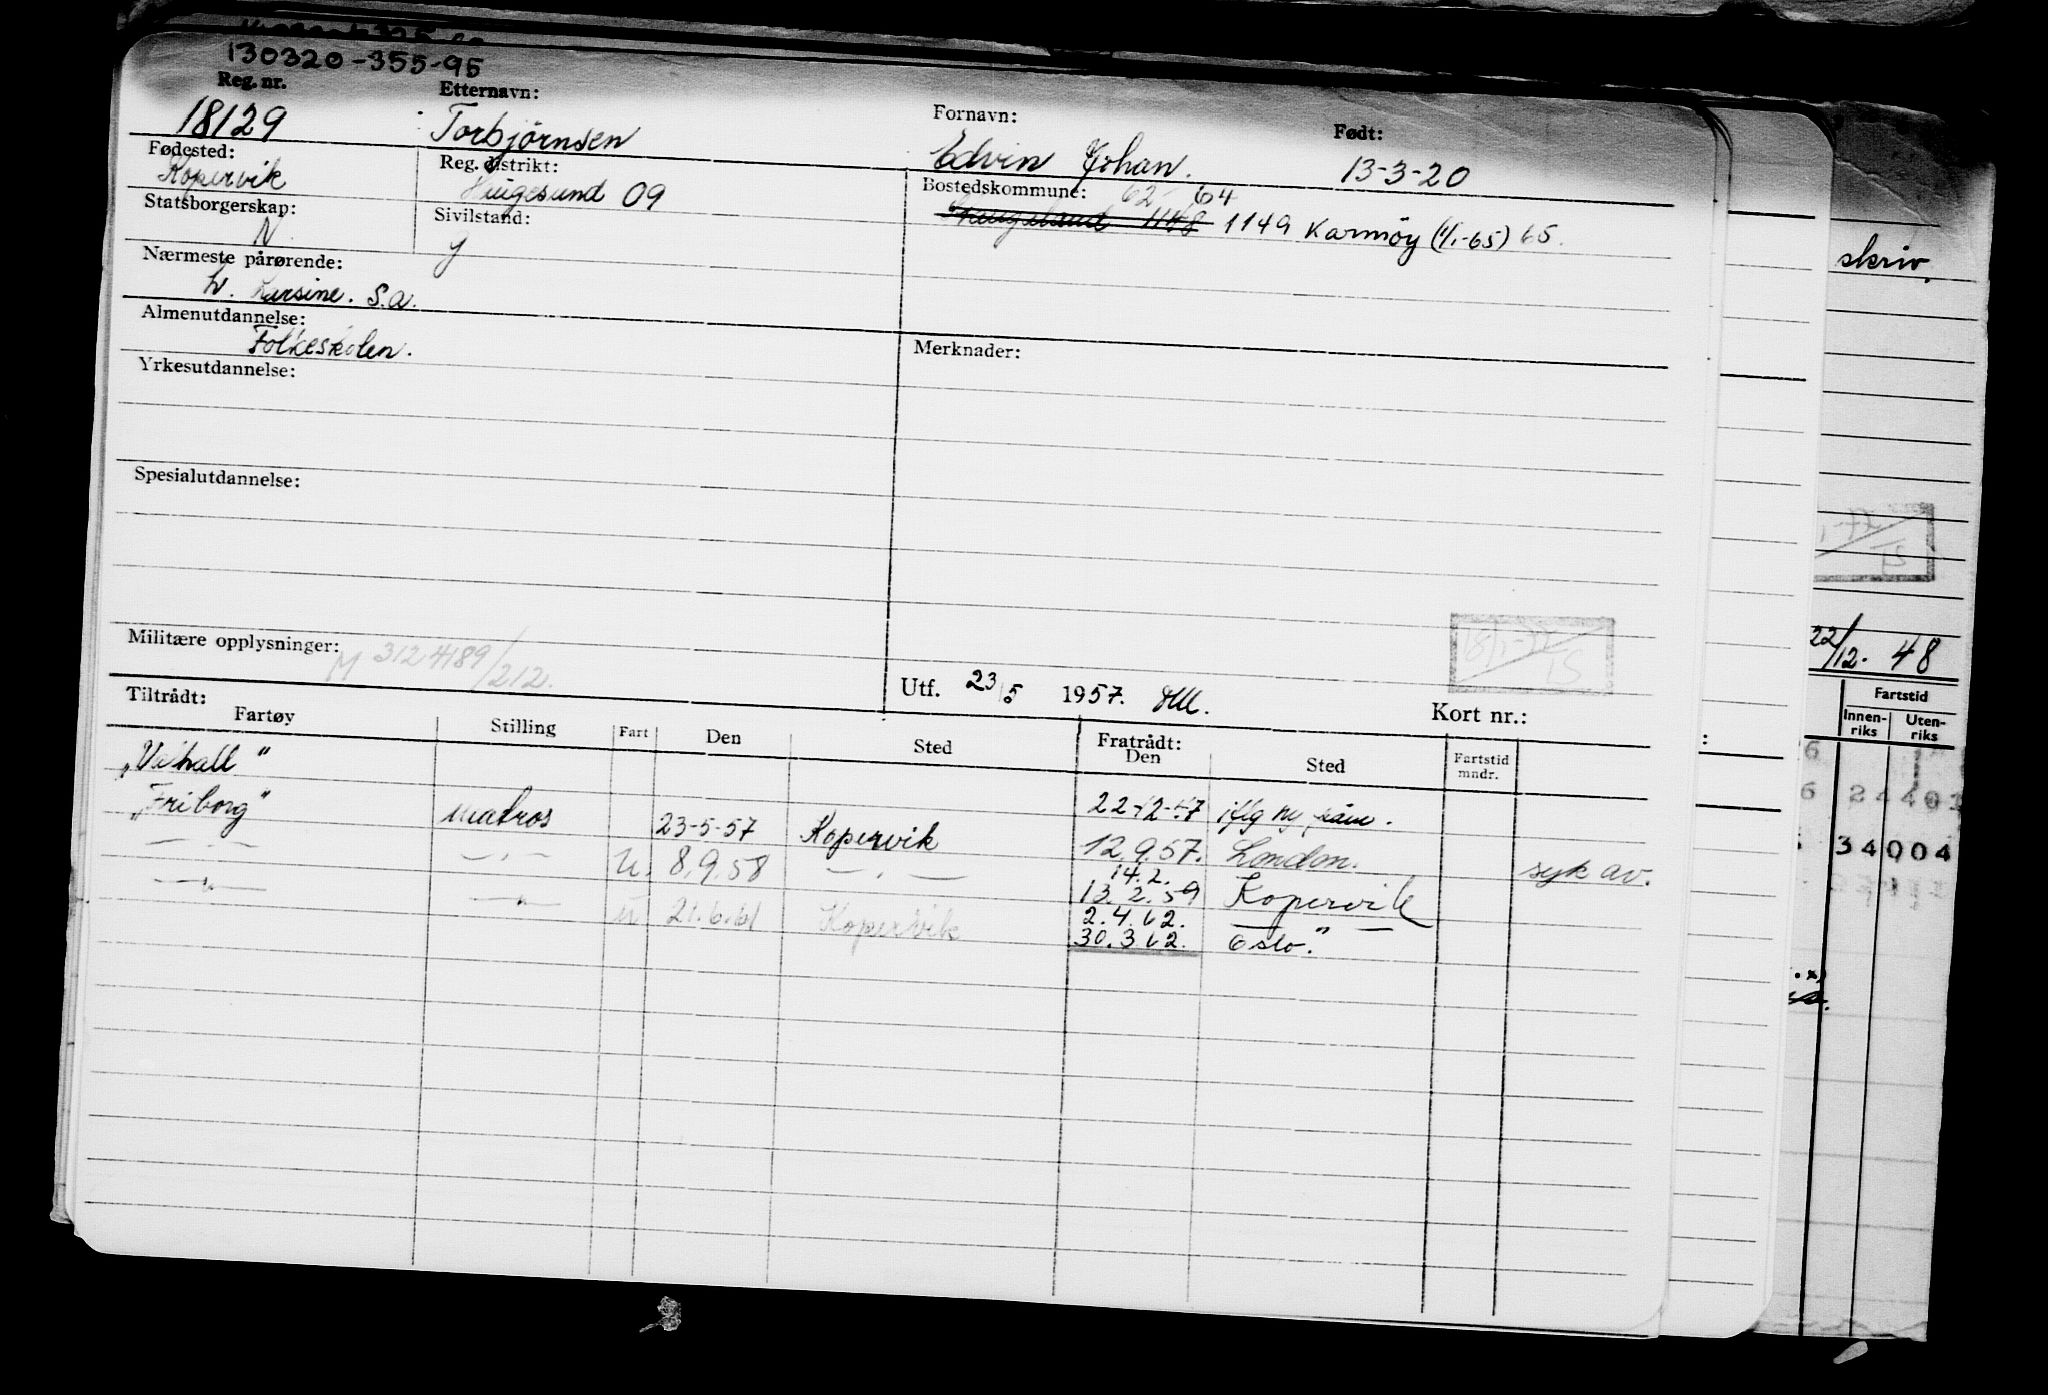 130320-355-95
Reg. nr. Etternavn: Fornavn: Født:
18129 Torbjørnsen Edvin Johan. 13-3-20
Fødested: Reg. distrikt: Bostedskommune: 62 - 64
Kopervik Haugesund 09 1149 Karmøy (1/1-65) 65.
Statsborgerskap: Sivilstand:
N. g
Nærmeste pårørende:
h. Larsine. S.a.
Almenutdannelse:
Folkeskolen.
Merknader:
Yrkesutdannelse:
Spesialutdannelse:
Militære opplysninger: M 3124189/212.
Utf. 23/5 1957. Kort nr.:
Tiltrådt: Fratrådt:
Fartøy Stilling Fart Den Sted Den Sted Fartstid mndr.
„Vahall" 22-12-47
„Friborg" matros 23-5-57 Kopervik 12.9.57. London. syk av.
— " — — " — U. 8.9.58 — " — 14.2.
13.2.59 Kopervik
— " — — " — U 21.6.61 Kopervik 2.4.62. — " —
30.3.62. Oslo.
skriv.
22/12. 48
Fartstid
Innen-riks Uten-riks
34004